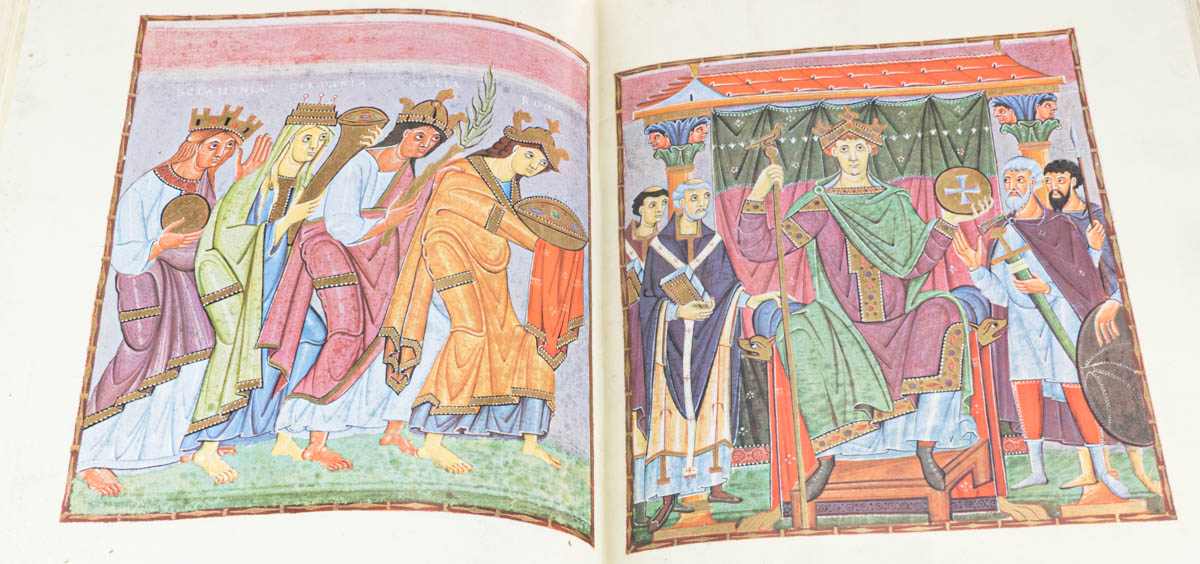 SCLAVINIA GERMANIA GALLIA ROMA